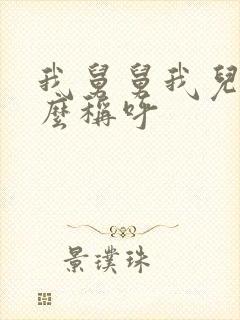 我舅舅我兒
麼稱呼
景璞珠